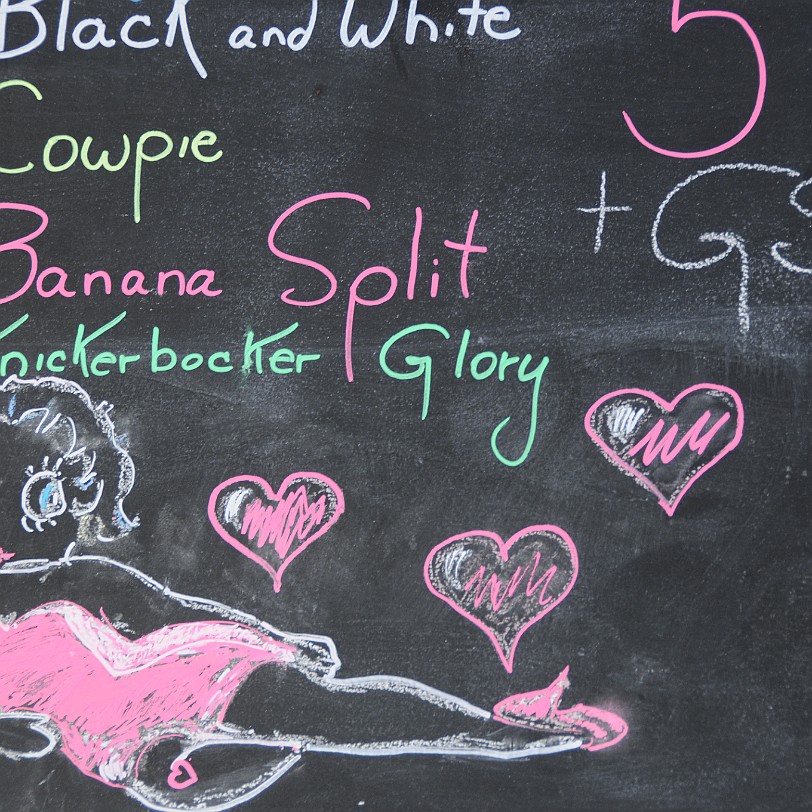 Black and White
5
Cowpie
+ GS
Banana Split
Knickerbocker Glory